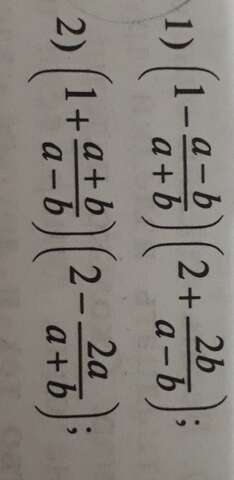 1) (1 - \frac{a-b}{a+b})(2 + \frac{2b}{a-b});
2) (1 + \frac{a+b}{a-b})(2 - \frac{2a}{a+b});